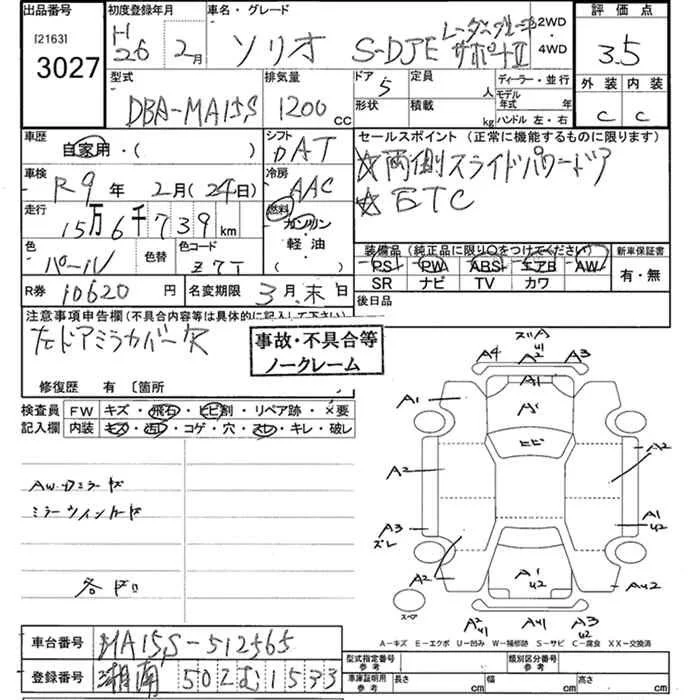 出品番号 初度登録年月 車名・グレード 評価点
[2163] 3027
H26 2月 ソリオ S-DJE レーダーブレーキサポートII 2WD・4WD 3.5
型式 排気量 ドア 定員 ディーラー・並行 外装 内装
DBA-MA15S 1200 cc 5 人 モデル年式 年 C C
形状 積載 kg ハンドル 左・右
車歴 シフト セールスポイント (正常に機能するものに限ります)
自家用・( ) DAT ☆両側スライドパワードア
車検 冷房
R9年 2月(24日) AAC ☆ETC
走行 燃料
15万6千739km ガソリン
軽油
( )
色 色替 色コード
パール Z7T
装備品 (純正品に限り○をつけてください) 新車保証書
PS PW ABS エアB AW 有・無
SR ナビ TV カワ
R券 10620円 名変期限 3月末日 後日品
注意事項申告欄(不具合内容等は具体的に記入して下さい)
左ドアミラカバー欠
事故・不具合等
ノークレーム
修復歴 有 〔箇所 〕
検査員 FW キズ・飛石・ヒビ割・リペア跡・×要
記入欄 内装 キズ・汚・コゲ・穴・スレ・キレ・破レ
AW・Dミラーキズ
ミラーウインカーキズ
各ドロ
ズレA
A4 A2 U1 A3
A1
A1
A1
ヒビ
A2
A2
A3
ズレ
A1
U2
A2
A1
U2
AU2
スペア
A2
U1
AU1
A3
U2
A-キズ E-エクボ U-凹み W-補修跡 S-サビ C-腐食 XX-交換済
車台番号 MA15S-512565
登録番号 湘南 502 む 1533
型式指定番号 参考 類別区分番号 参考
車庫証明用 参考 長さ cm 幅 cm 高さ cm